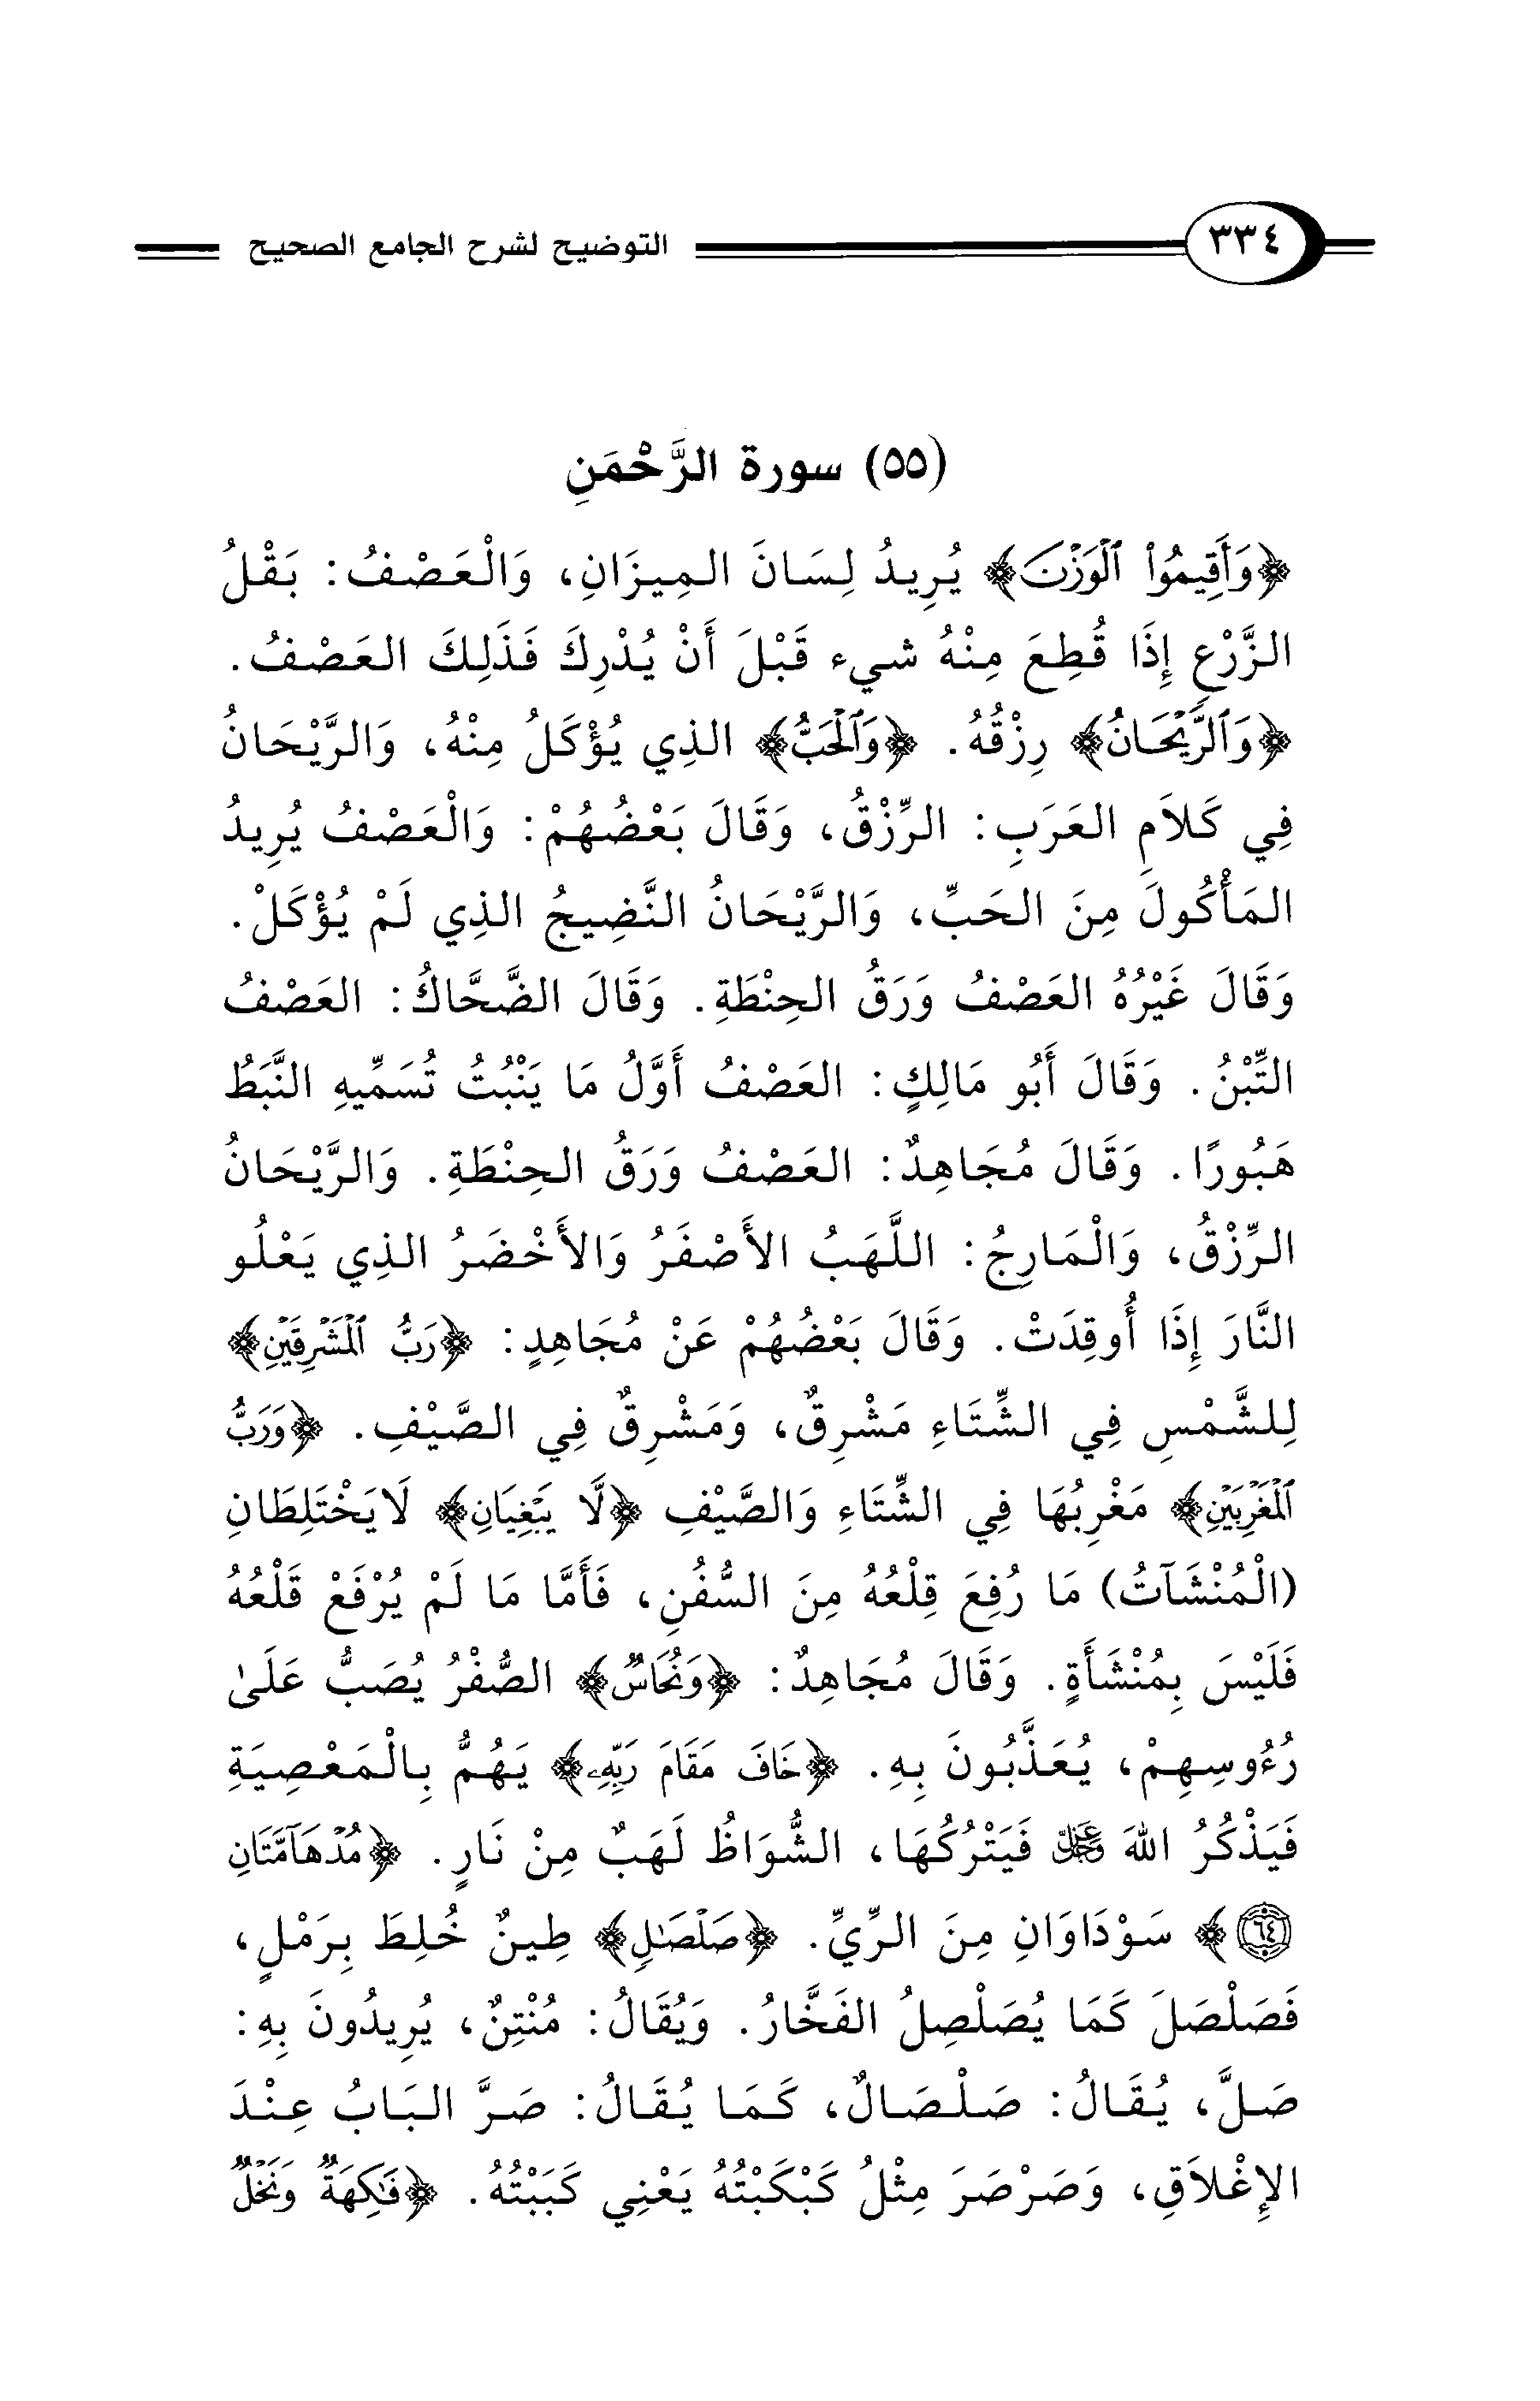 ٣٣٤ التوضيح لشرح الجامع الصحيح
(٥٥) سورة الرَّحْمَنِ
﴿وَأَقِيمُواْ ٱلْوَزْنَ﴾ يُرِيدُ لِسَانَ المِيزَانِ، وَالْعَصْفُ: بَقْلُ
الزَّرْعِ إِذَا قُطِعَ مِنْهُ شيء قَبْلَ أَنْ يُدْرِكَ فَذَلِكَ العَصْفُ.
﴿وَٱلرَّيْحَانُ﴾ رِزْقُهُ. ﴿وَٱلْحَبُّ﴾ الذِي يُؤْكَلُ مِنْهُ، وَالرَّيْحَانُ
فِي كَلَامِ العَرَبِ: الرِّزْقُ، وَقَالَ بَعْضُهُمْ: وَالْعَصْفُ يُرِيدُ
المَأْكُولَ مِنَ الحَبِّ، وَالرَّيْحَانُ النَّضِيجُ الذِي لَمْ يُؤْكَلْ.
وَقَالَ غَيْرُهُ العَصْفُ وَرَقُ الحِنْطَةِ. وَقَالَ الضَّحَّاكُ: العَصْفُ
التِّبْنُ. وَقَالَ أَبُو مَالِكٍ: العَصْفُ أَوَّلُ مَا يَنْبُتُ تُسَمِّيهِ النَّبَطُ
هَبُورًا. وَقَالَ مُجَاهِدٌ: العَصْفُ وَرَقُ الحِنْطَةِ. وَالرَّيْحَانُ
الرِّزْقُ، وَالْمَارِجُ: اللَّهَبُ الأَصْفَرُ وَالأَخْضَرُ الذِي يَعْلُو
النَّارَ إِذَا أُوقِدَتْ. وَقَالَ بَعْضُهُمْ عَنْ مُجَاهِدٍ: ﴿رَبُّ ٱلْمَشْرِقَيْنِ﴾
لِلشَّمْسِ فِي الشِّتَاءِ مَشْرِقٌ، وَمَشْرِقٌ فِي الصَّيْفِ. ﴿وَرَبُّ
ٱلْمَغْرِبَيْنِ﴾ مَغْرِبُهَا فِي الشِّتَاءِ وَالصَّيْفِ ﴿لَّا يَبْغِيَانِ﴾ لَايَخْتَلِطَانِ
(الْمُنْشَآتُ) مَا رُفِعَ قِلْعُهُ مِنَ السُّفُنِ، فَأَمَّا مَا لَمْ يُرْفَعْ قَلْعُهُ
فَلَيْسَ بِمُنْشَأَةٍ. وَقَالَ مُجَاهِدٌ: ﴿وَنُحَاسٌ﴾ الصُّفْرُ يُصَبُّ عَلَىٰ
رُءُوسِهِمْ، يُعَذَّبُونَ بِهِ. ﴿خَافَ مَقَامَ رَبِّهِۦ﴾ يَهُمُّ بِالْمَعْصِيَةِ
فَيَذْكُرُ اللهَ ﷿ فَيَتْرُكُهَا، الشُّوَاظُ لَهَبٌ مِنْ نَارٍ. ﴿مُدْهَآمَّتَانِ
٦٤﴾ سَوْدَاوَانِ مِنَ الرِّيِّ. ﴿صَلْصَـٰلٍ﴾ طِينٌ خُلِطَ بِرَمْلٍ،
فَصَلْصَلَ كَمَا يُصَلْصِلُ الفَخَّارُ. وَيُقَالُ: مُنْتِنٌ، يُرِيدُونَ بِهِ:
صَلَّ، يُقَالُ: صَلْصَالٌ، كَمَا يُقَالُ: صَرَّ البَابُ عِنْدَ
الإِغْلَاقِ، وَصَرْصَرَ مِثْلُ كَبْكَبْتُهُ يَعْنِي كَبَبْتُهُ. ﴿فَـٰكِهَةٌ وَنَخْلٌ